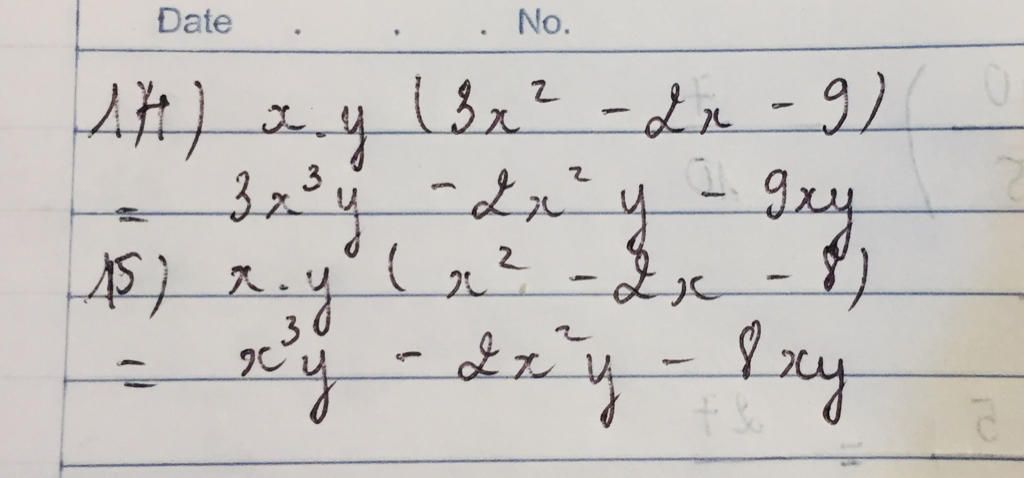 Date . . . No.
14) x.y (3x² - 2x - 9)
= 3x³y - 2x²y - 9xy
15) x.y (x² - 2x - 8)
= x³y - 2x²y - 8xy